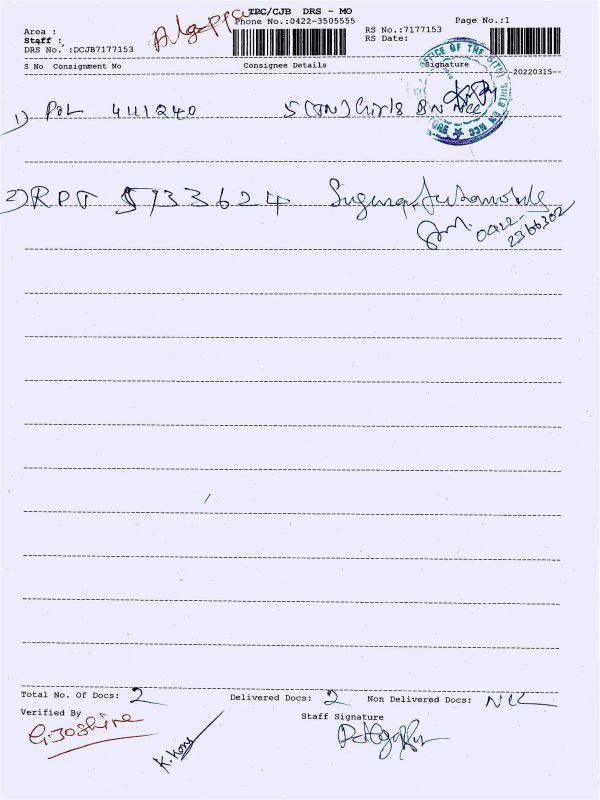 Alagappa
TPC/CJB DRS - MO
Phone No.:0422-3505555
Page No.:1
Area :
Staff :
DRS No. :DCJB7177153
RS No.:7177153
RS Date:
S No Consignment No Consignee Details Signature
20220315
OFFICE OF THE 5(TN) GIRLS BN NCC
1) POL 411240 5(TN) Girls BN NCC
2) RPT 5733624 Suguna Automobile
0422-
2366302
Total No. Of Docs: 2 Delivered Docs: 2 Non Delivered Docs: NIL
Verified By
Staff Signature
G. Joshine